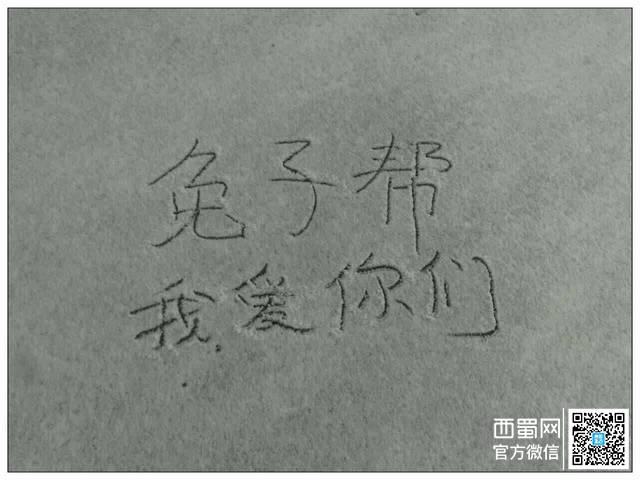 兔子帮
我爱你们
西蜀网
官方微信